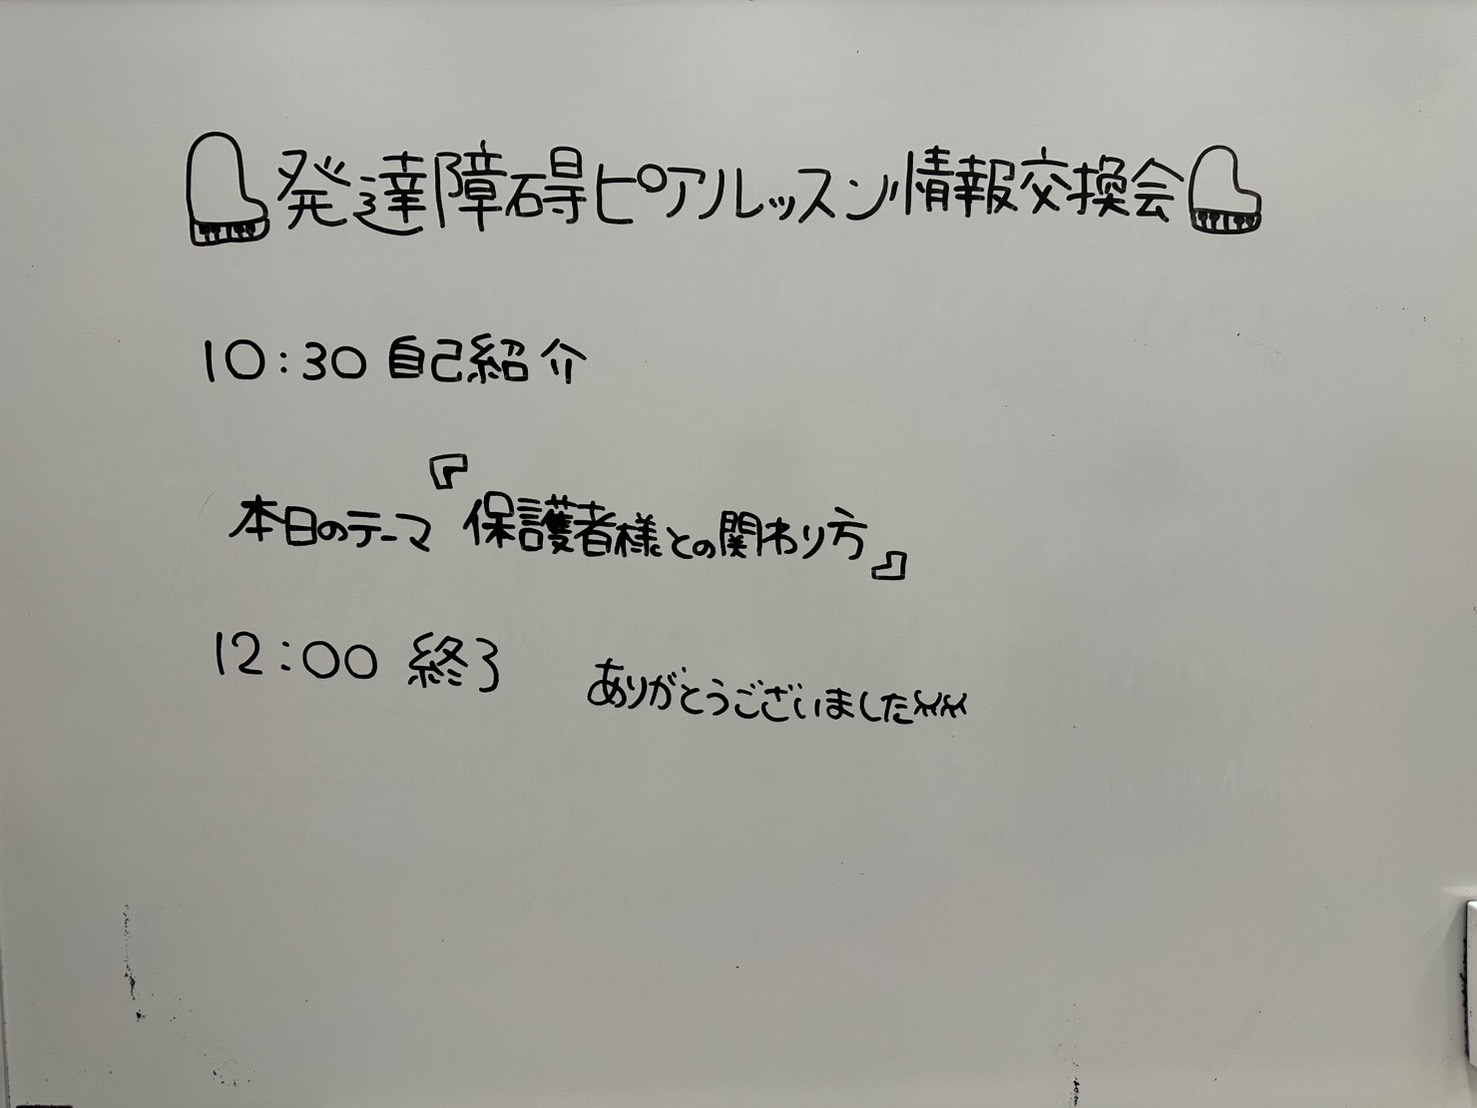 発達障碍ピアルレッスン情報交換会
10:30 自己紹介
本日のテーマ『保護者様との関わり方』
12:00 終了 ありがとうございました